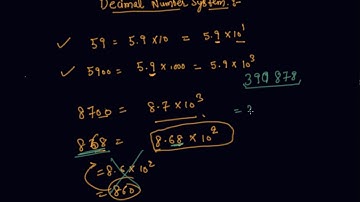 Decimal Number System :-
✓ 59 = 5.9 × 10 = 5.9 × 10¹
✓ 5900 = 5.9 × 1000 = 5.9 × 10³
390 878
8700 = 8.7 × 10³ = 3
868 = 8.68 × 10²
= 8.6 × 10²
= 860